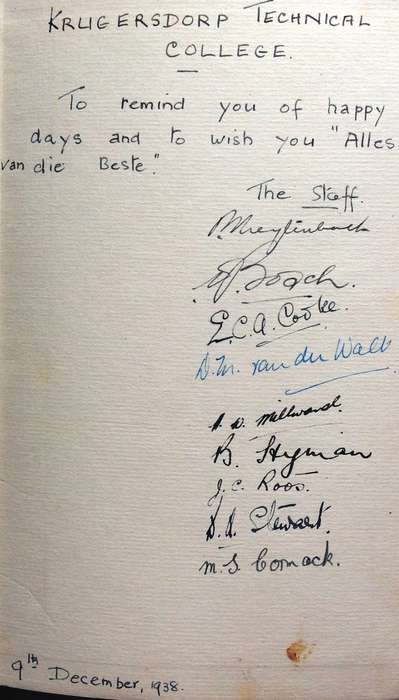 KRUGERSDORP TECHNICAL
COLLEGE.
To remind you of happy
days and to wish you "Alles
van die Beste."
The Staff.
E.C.A. Cooke.
D.M. van der Walt
Millward.
B. Hyman
J.C. Roos.
Stewart.
M.S. Comack.
9th December, 1938.